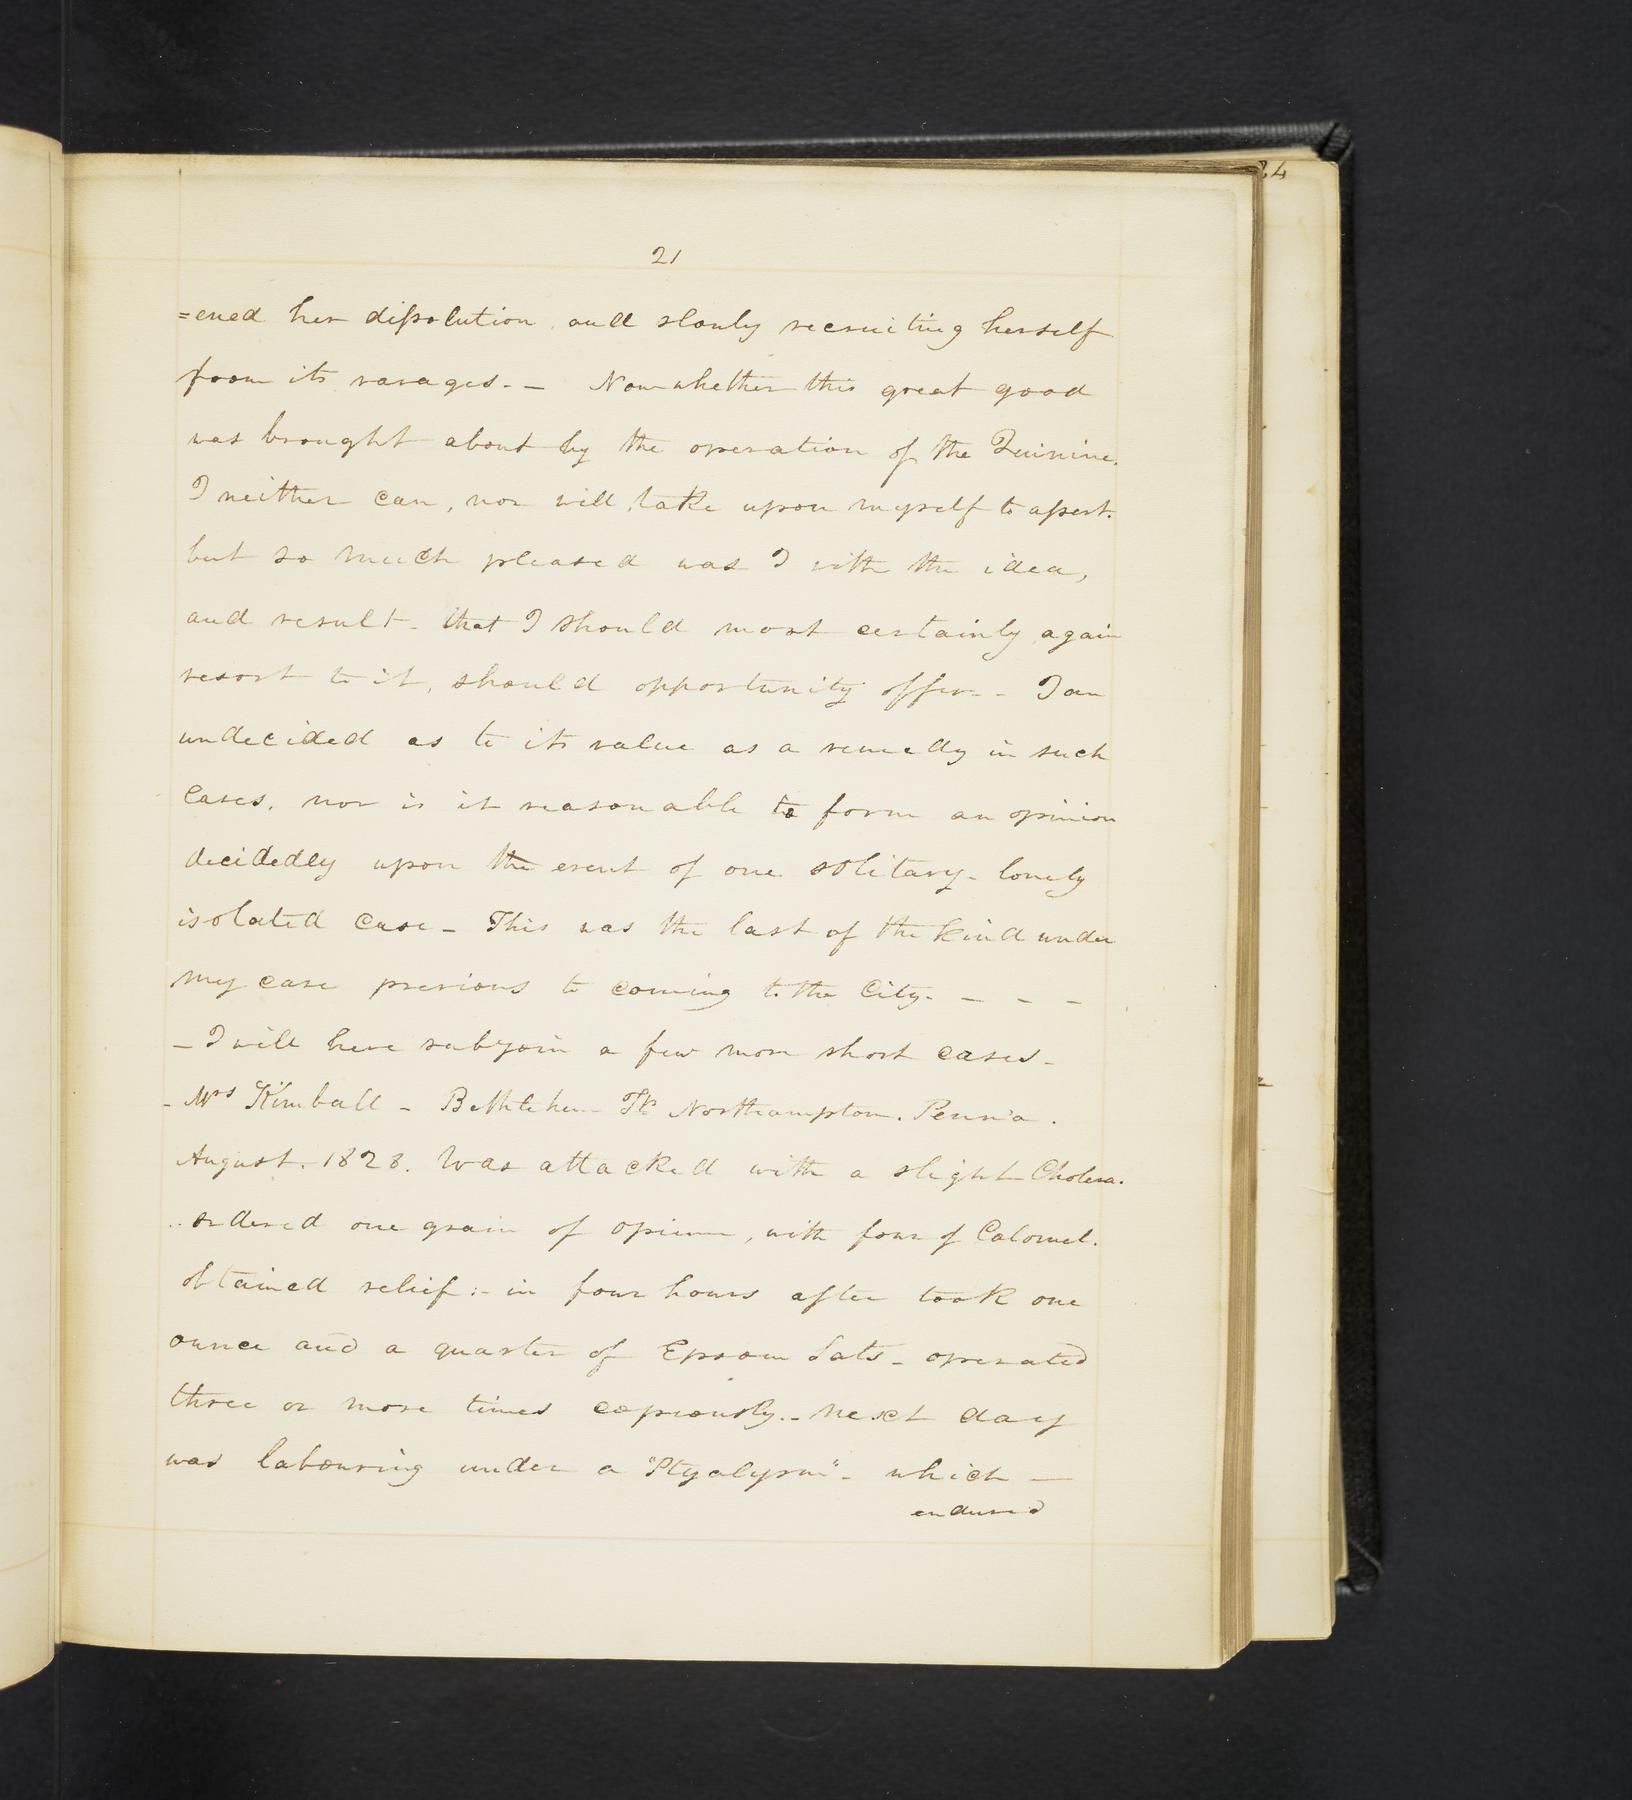 24
21
=ened her dissolution and slowly recruiting herself
from its ravages. - Now whether this great good
was brought about by the operation of the Quinine.
I neither can, nor will take upon myself to assert.
but so much pleased was I with the idea,
and result - that I should most certainly again
resort to it, should opportunity offer - - I am
undecided as to its value as a remedy in such
cases. nor is it reasonable to form an opinion
decidedly upon the event of one solitary - lonely
isolated case - This was the last of the kind under
my care previous to coming to the City. - - -
- I will here subjoin a few more short cases -
- Mrs Kimball - Bethlehem Tp Northampton. Penn'a.
August. 1828. Was attacked with a slight Cholera.
.. ordered one grain of opium, with four of Calomel.
obtained relief :- in four hours after took one
ounce and a quarter of Epsom Sats - operated
three or more times copiously. - Next day
was labouring under a "Ptyalysm" - which -
endured